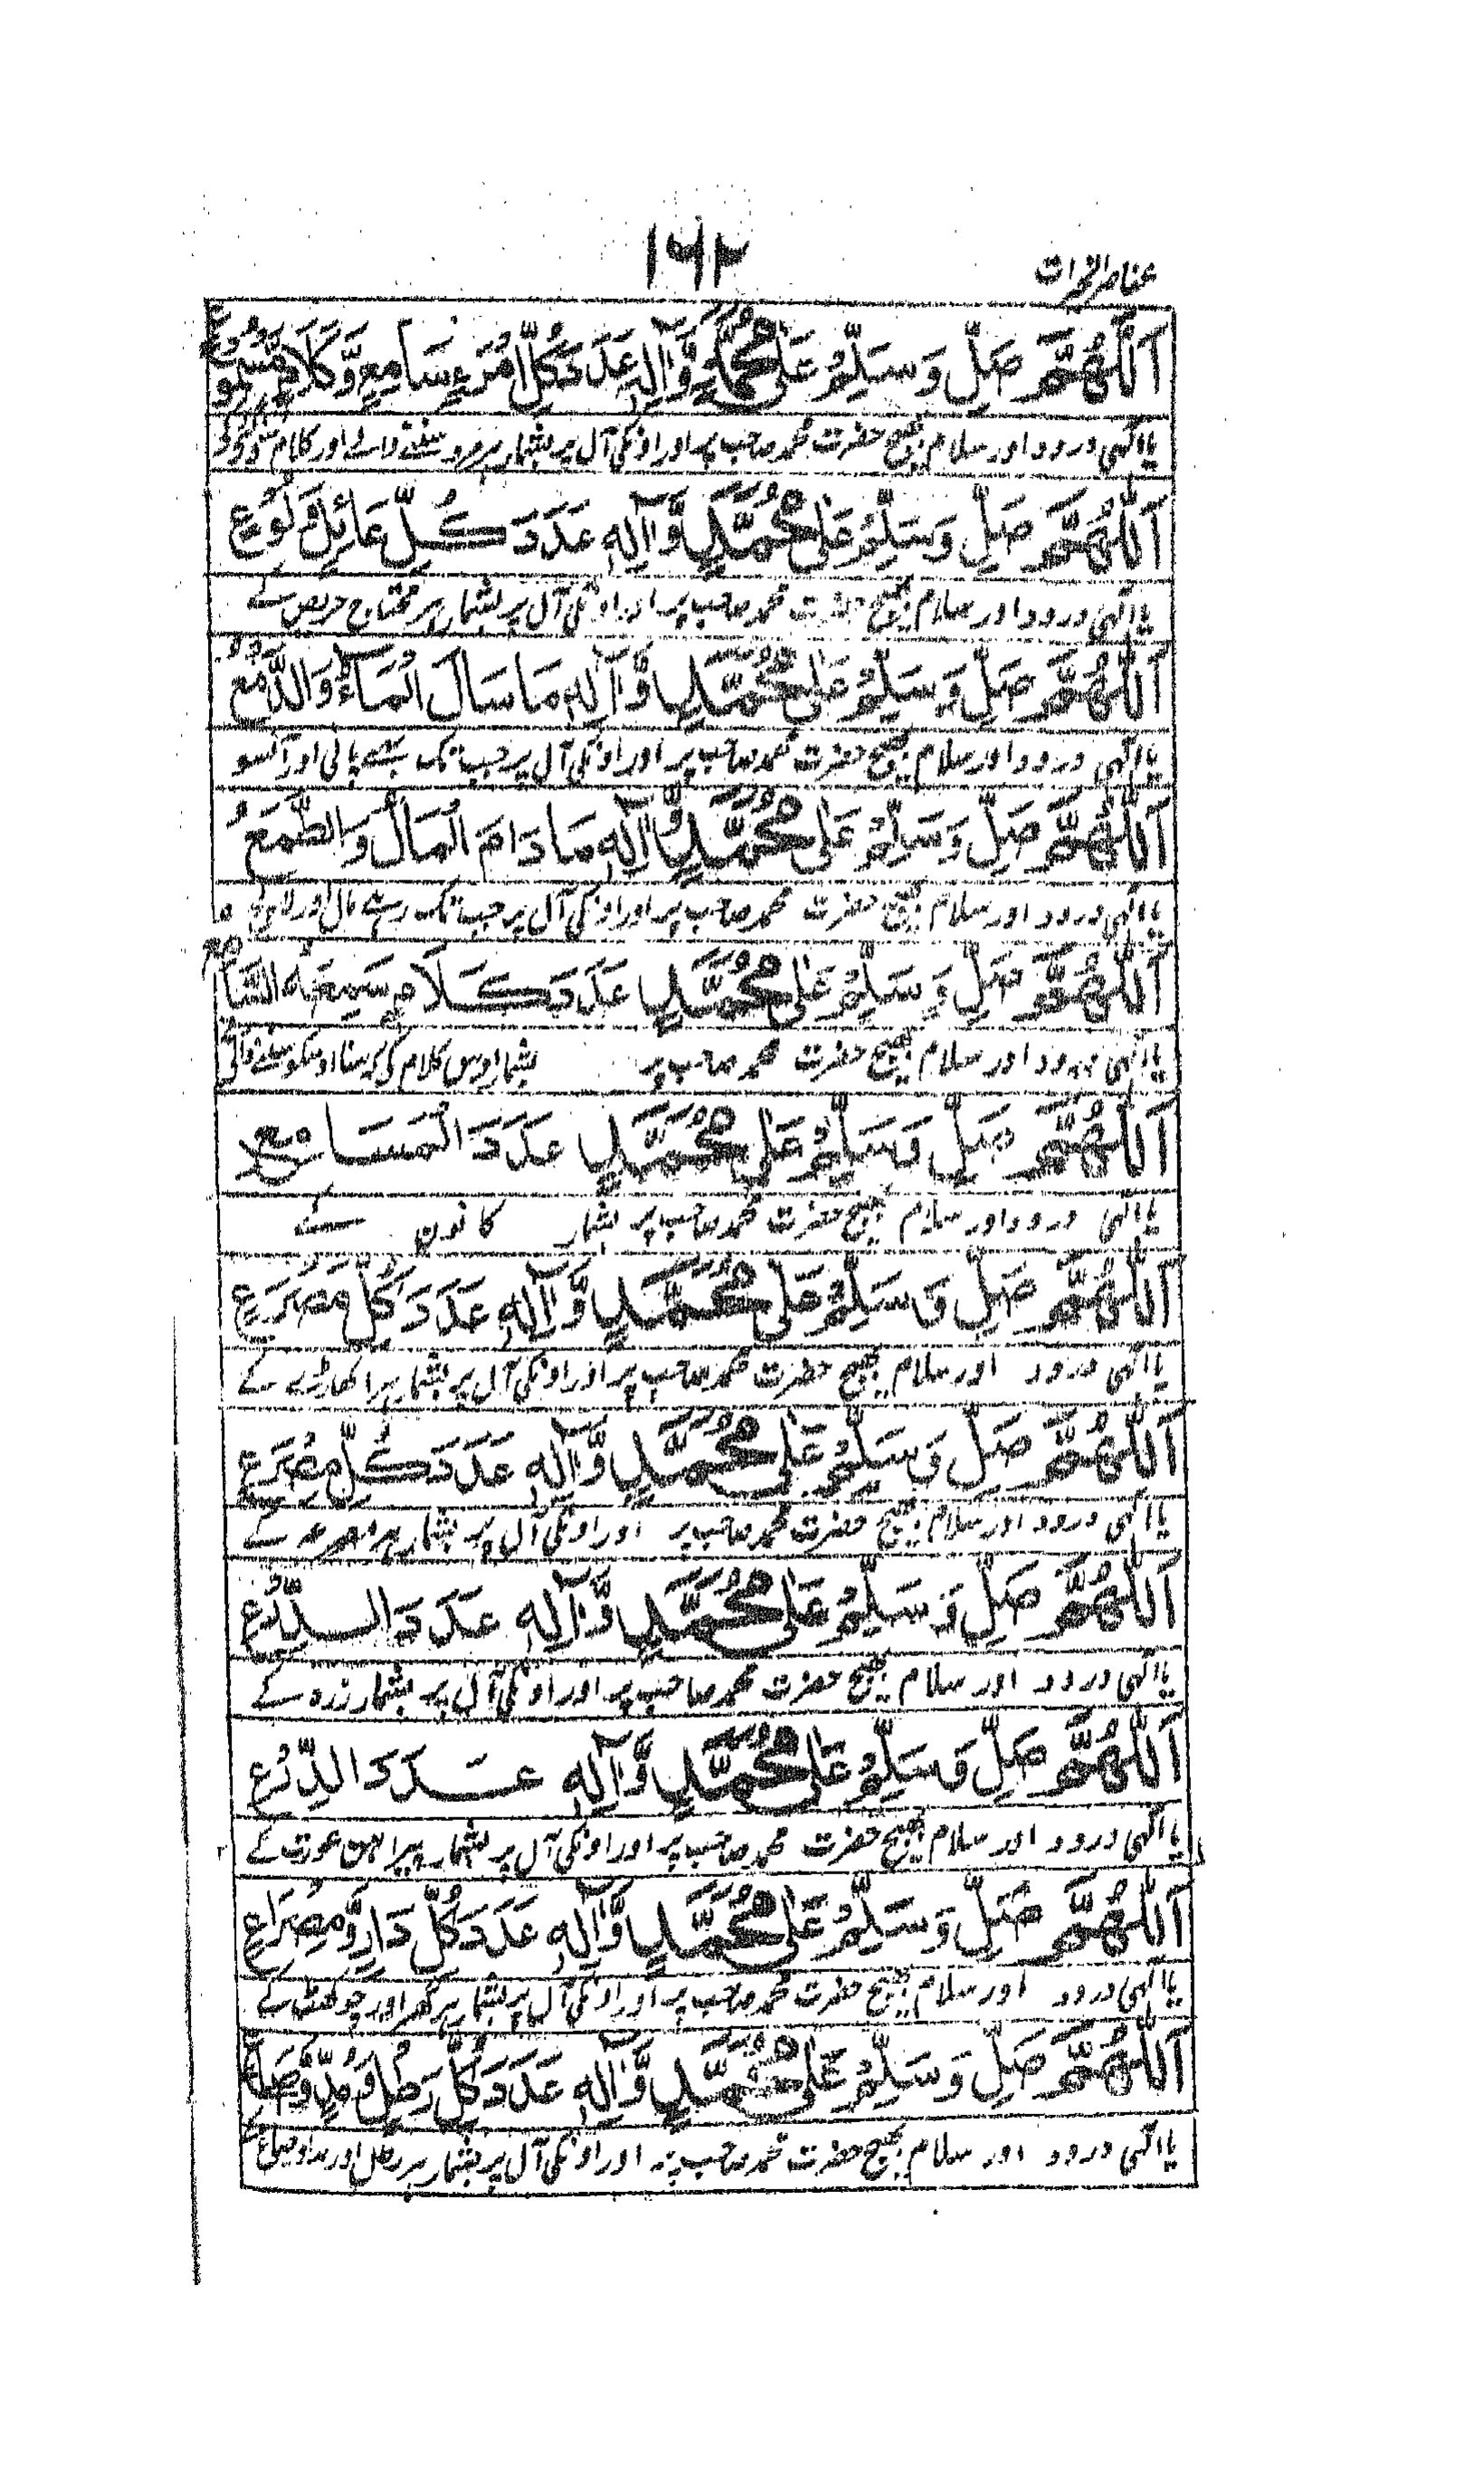 ۱۶۲
عناصر الخیرات
اَللّٰهُمَّ صَلِّ وَسَلِّمْ عَلٰى مُحَمَّدٍ وَّاٰلِهٖ عَدَدَ كُلِّ امْرَءٍ سَامِعٍ وَّكَلَامٍ مَّسْمُوْعٍ
یا الٰہی درود اور سلام بھیج حضرت محمد صاحب پر اور اونکی آل پر بشمار ہر مرد سننے والے اور کلام
اَللّٰهُمَّ صَلِّ وَسَلِّمْ عَلٰى مُحَمَّدٍ وَّاٰلِهٖ عَدَدَ كُلِّ عَائِلٍ
یا الٰہی درود اور سلام بھیج حضرت محمد صاحب پر اور اونکی آل پر بشمار ہر محتاج حریص کے
اَللّٰهُمَّ صَلِّ وَسَلِّمْ عَلٰى مُحَمَّدٍ وَّاٰلِهٖ مَا سَالَ الْمَاءُ وَالدَّمْعُ
یا الٰہی درود اور سلام بھیج حضرت محمد صاحب پر اور اونکی آل پر جب تک بہے پانی اور آنسو
اَللّٰهُمَّ صَلِّ وَسَلِّمْ عَلٰى مُحَمَّدٍ وَّاٰلِهٖ مَا دَامَ الْمَالُ وَالطَّمَعُ
یا الٰہی درود اور سلام بھیج حضرت محمد صاحب پر اور اونکی آل پر جب تک رہے مال اور لالچ
اَللّٰهُمَّ صَلِّ وَسَلِّمْ عَلٰى مُحَمَّدٍ عَدَدَ كَلَامٍ سَمِعَهُ السَّامِعُ
یا الٰہی درود اور سلام بھیج حضرت محمد صاحب پر بشمار اوس کلام کی کہ سنا اوسکو سننے والی
اَللّٰهُمَّ صَلِّ وَسَلِّمْ عَلٰى مُحَمَّدٍ عَدَدَ الْمَسَامِعِ
یا الٰہی درود اور سلام بھیج حضرت محمد صاحب پر بشمار کانون کے
اَللّٰهُمَّ صَلِّ وَسَلِّمْ عَلٰى مُحَمَّدٍ وَّاٰلِهٖ عَدَدَ كُلِّ مَصْرَعٍ
یا الٰہی درود اور سلام بھیج حضرت محمد صاحب پر اور اونکی آل پر بشمار ہر اکھاڑے کے
اَللّٰهُمَّ صَلِّ وَسَلِّمْ عَلٰى مُحَمَّدٍ وَّاٰلِهٖ عَدَدَ كُلِّ مِصْرَعٍ
یا الٰہی درود اور سلام بھیج حضرت محمد صاحب پر اور اونکی آل پر بشمار ہر مصرعہ کے
اَللّٰهُمَّ صَلِّ وَسَلِّمْ عَلٰى مُحَمَّدٍ وَّاٰلِهٖ عَدَدَ الدِّرْعِ
یا الٰہی درود اور سلام بھیج حضرت محمد صاحب پر اور اونکی آل پر بشمار زرہ کے
اَللّٰهُمَّ صَلِّ وَسَلِّمْ عَلٰى مُحَمَّدٍ وَّاٰلِهٖ عَدَدَ الدِّرْعِ
یا الٰہی درود اور سلام بھیج حضرت محمد صاحب پر اور اونکی آل پر بشمار پیراہن عورت کے
اَللّٰهُمَّ صَلِّ وَسَلِّمْ عَلٰى مُحَمَّدٍ وَّاٰلِهٖ عَدَدَ كُلِّ دَارٍ وَّمِصْرَاعٍ
یا الٰہی درود اور سلام بھیج حضرت محمد صاحب پر اور اونکی آل پر بشمار ہر گھر اور چوکھٹ کے
اَللّٰهُمَّ صَلِّ وَسَلِّمْ عَلٰى مُحَمَّدٍ وَّاٰلِهٖ عَدَدَ كُلِّ رَطْلٍ وَّمُدٍّ وَّصَاعٍ
یا الٰہی درود اور سلام بھیج حضرت محمد صاحب پر اور اونکی آل پر بشمار ہر رطل اور مد اور صاع کے